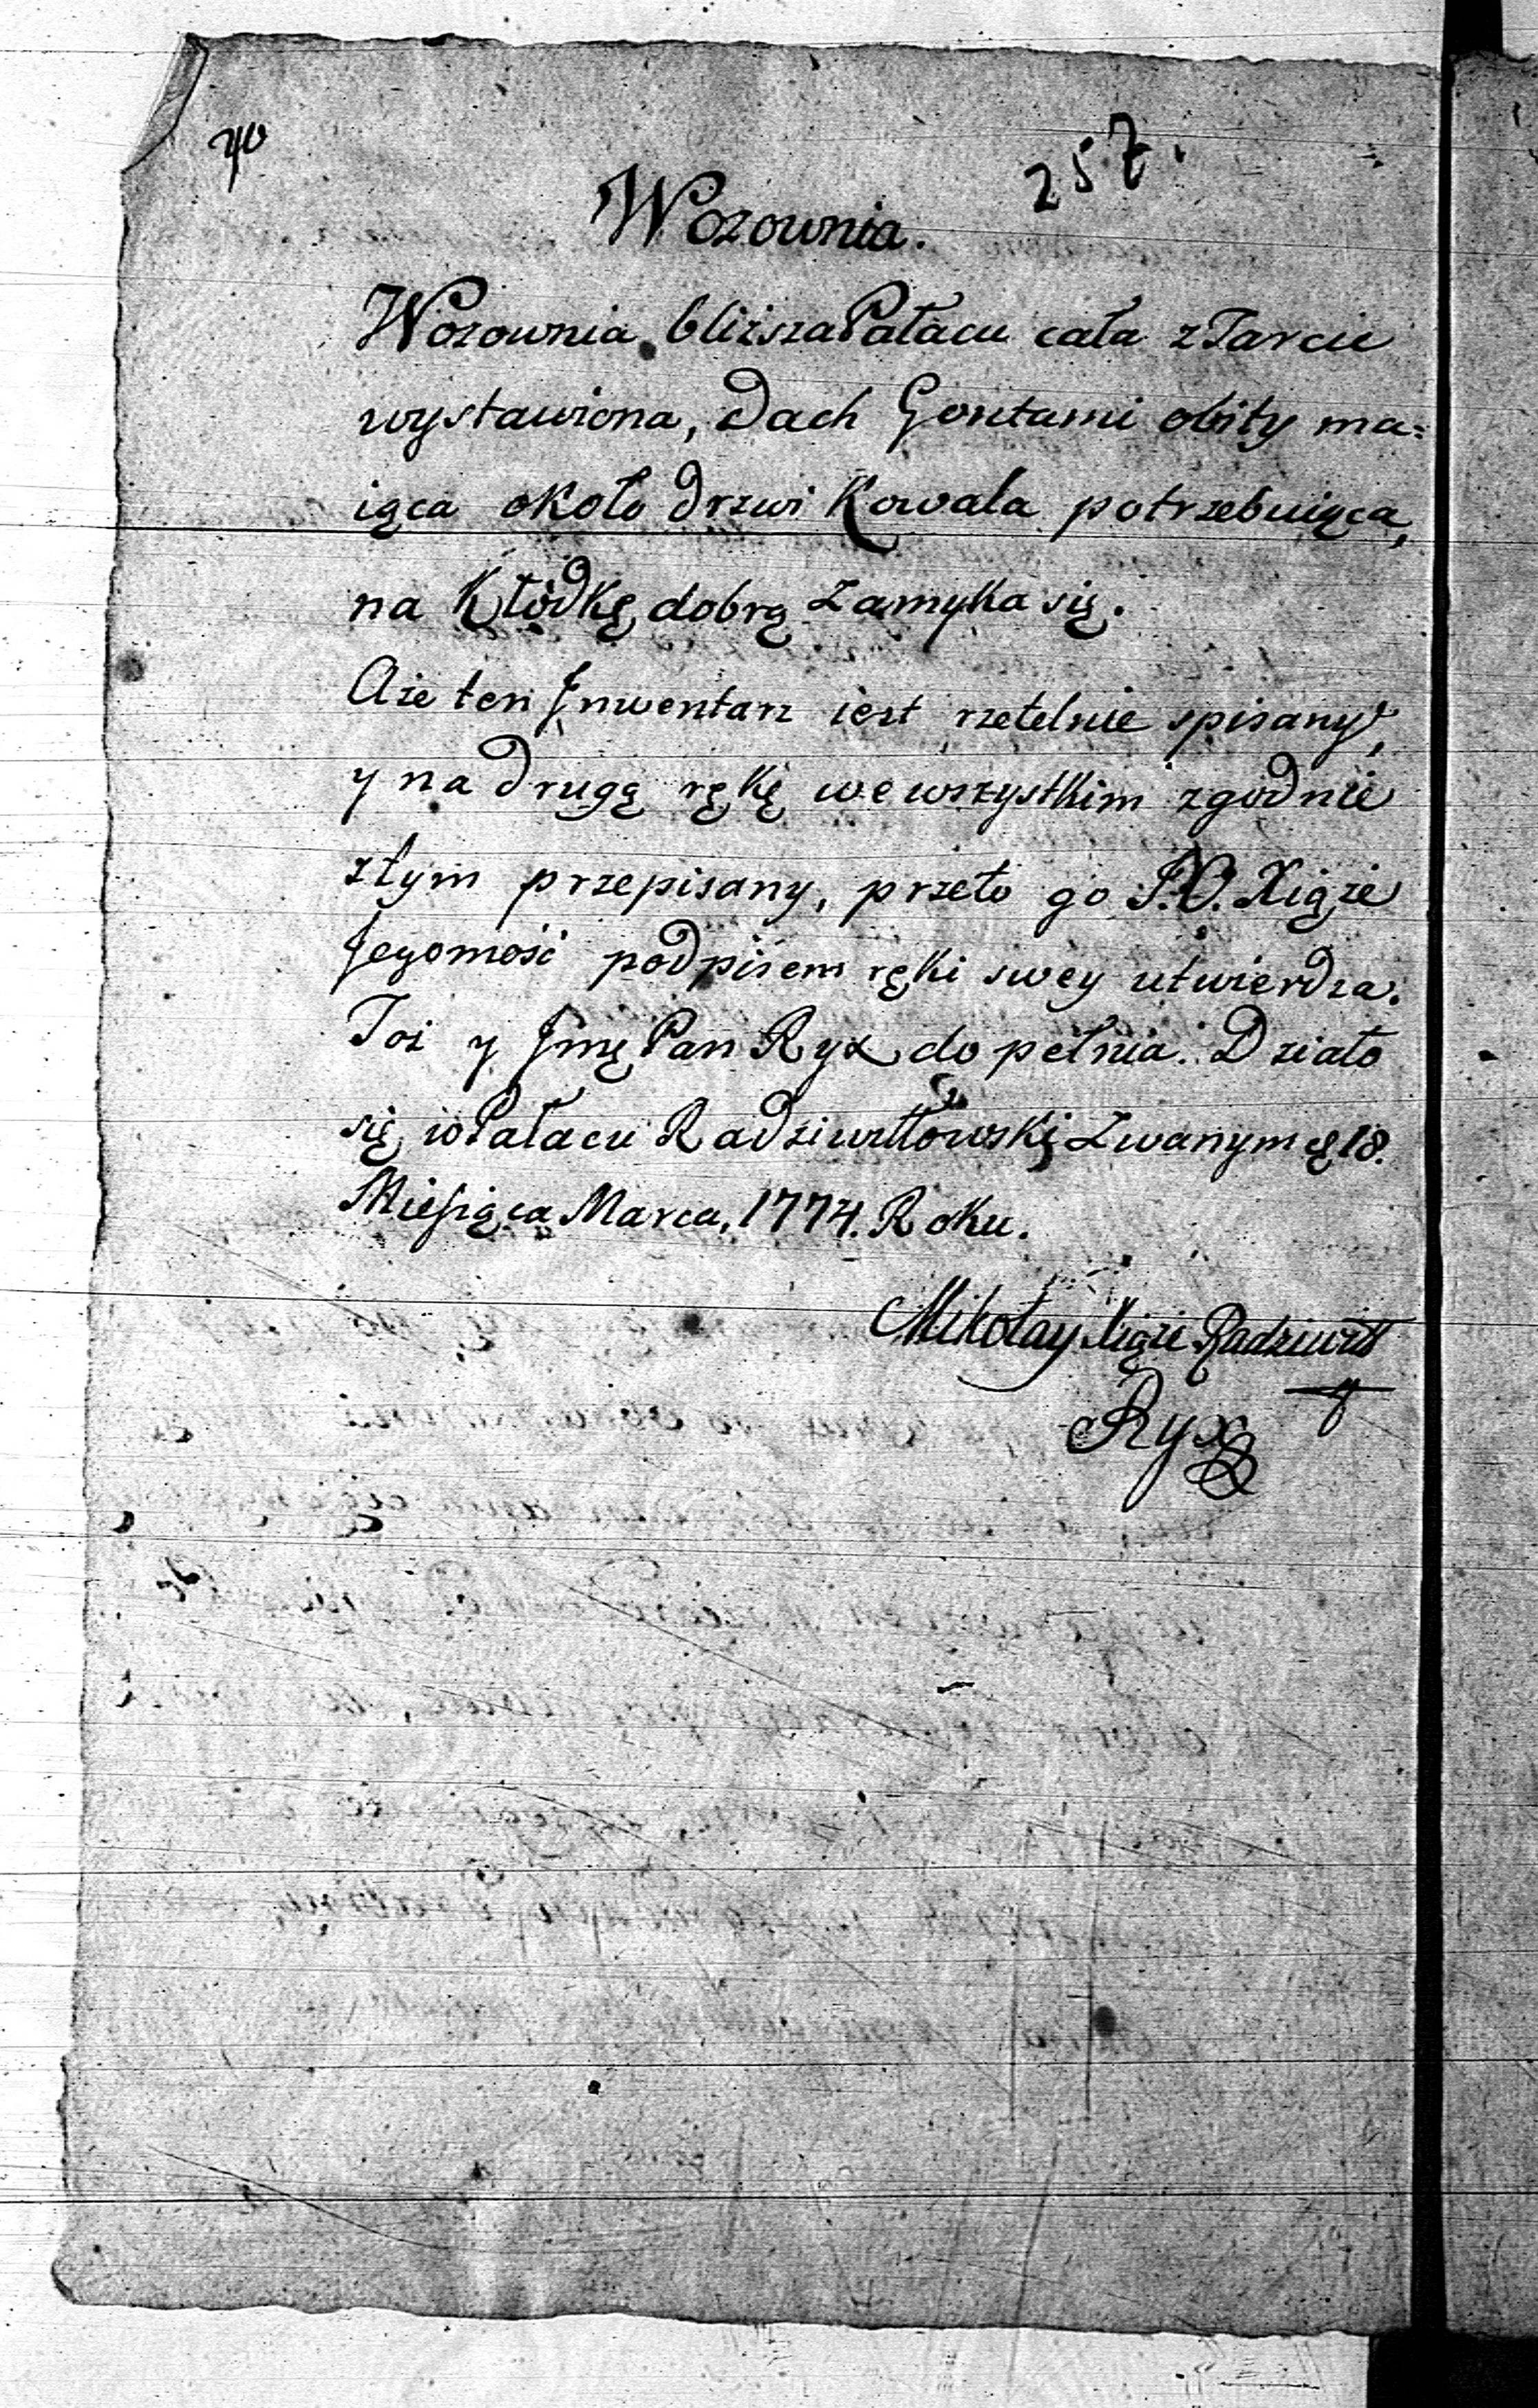 257.
Wozownia.
Wozownia bliższa Pałacu cała z Tarcic
wystawiona, Dach Gontami obity ma=
iąca około drzwi Kowala potrzebuiąca,
na Kłodkę dobrą zamyka się.
Aże ten Jnwentarz iest rzetelnie spisany,
y na drugą rękę we wszystkim zgodnie
z tym przepisany, przeto go J.O. Xiąże
Jegomość podpisem ręki swey utwierdza.
Toż y Jmę Pan Ryx do pełnia. Działo
się w Pałacu Radziwiłłowskį zwanym 18.
Miesiąca Marca, 1774. Roku.
Mikołay Xiąże Radziwiłł
Ryx